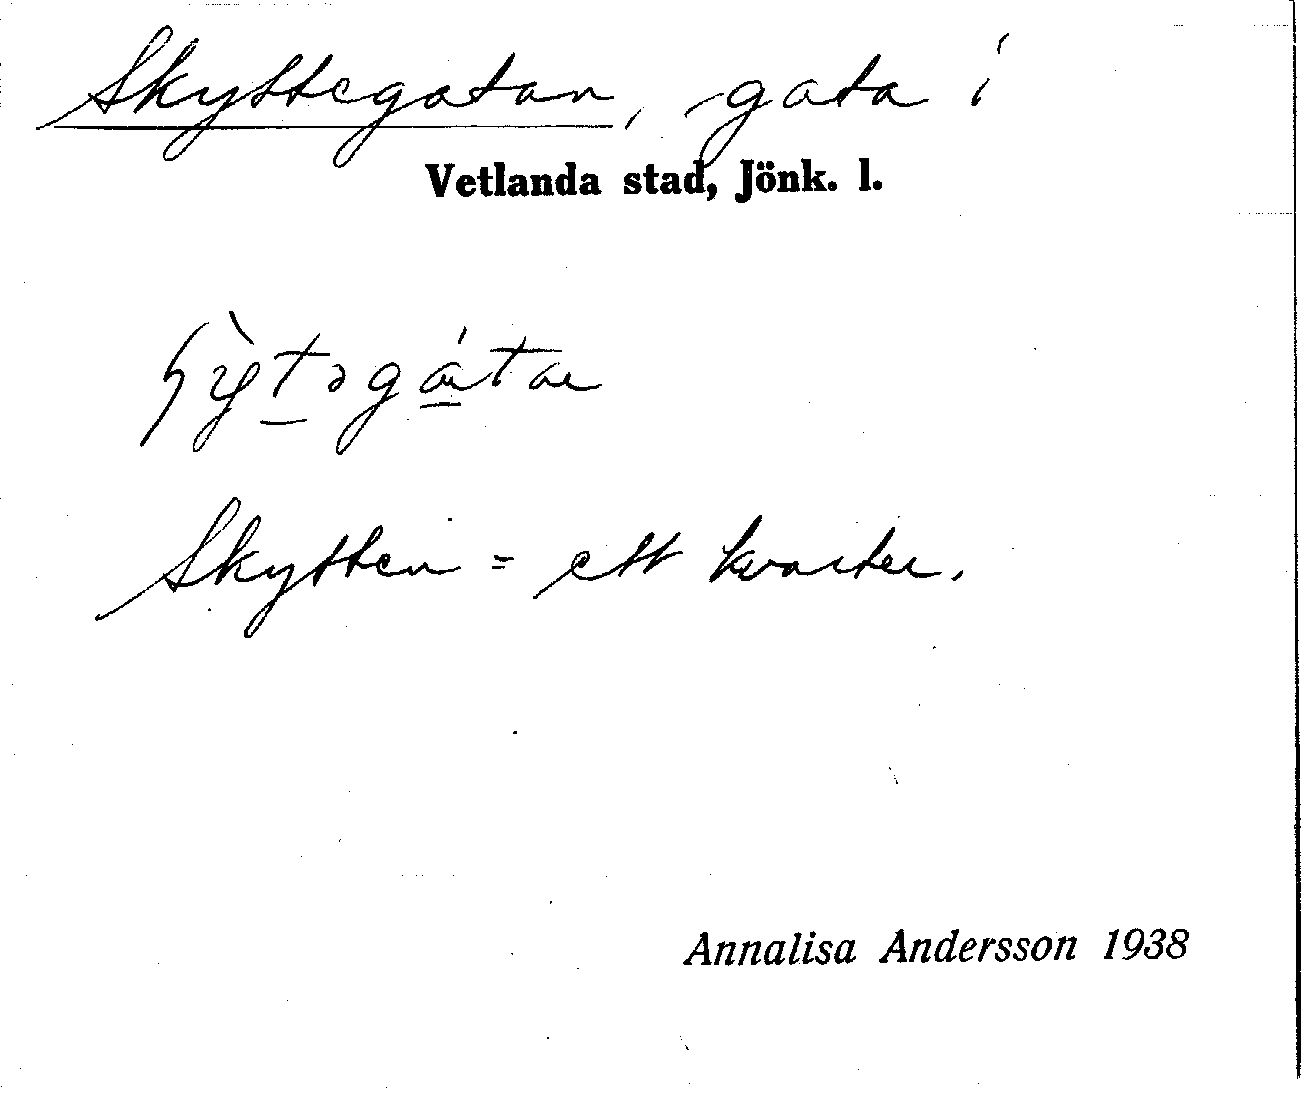 Skyttegatan, gata i
Vetlanda stad, Jönk. l.
Skytten = ett kvarter.
Annalisa Andersson 1938